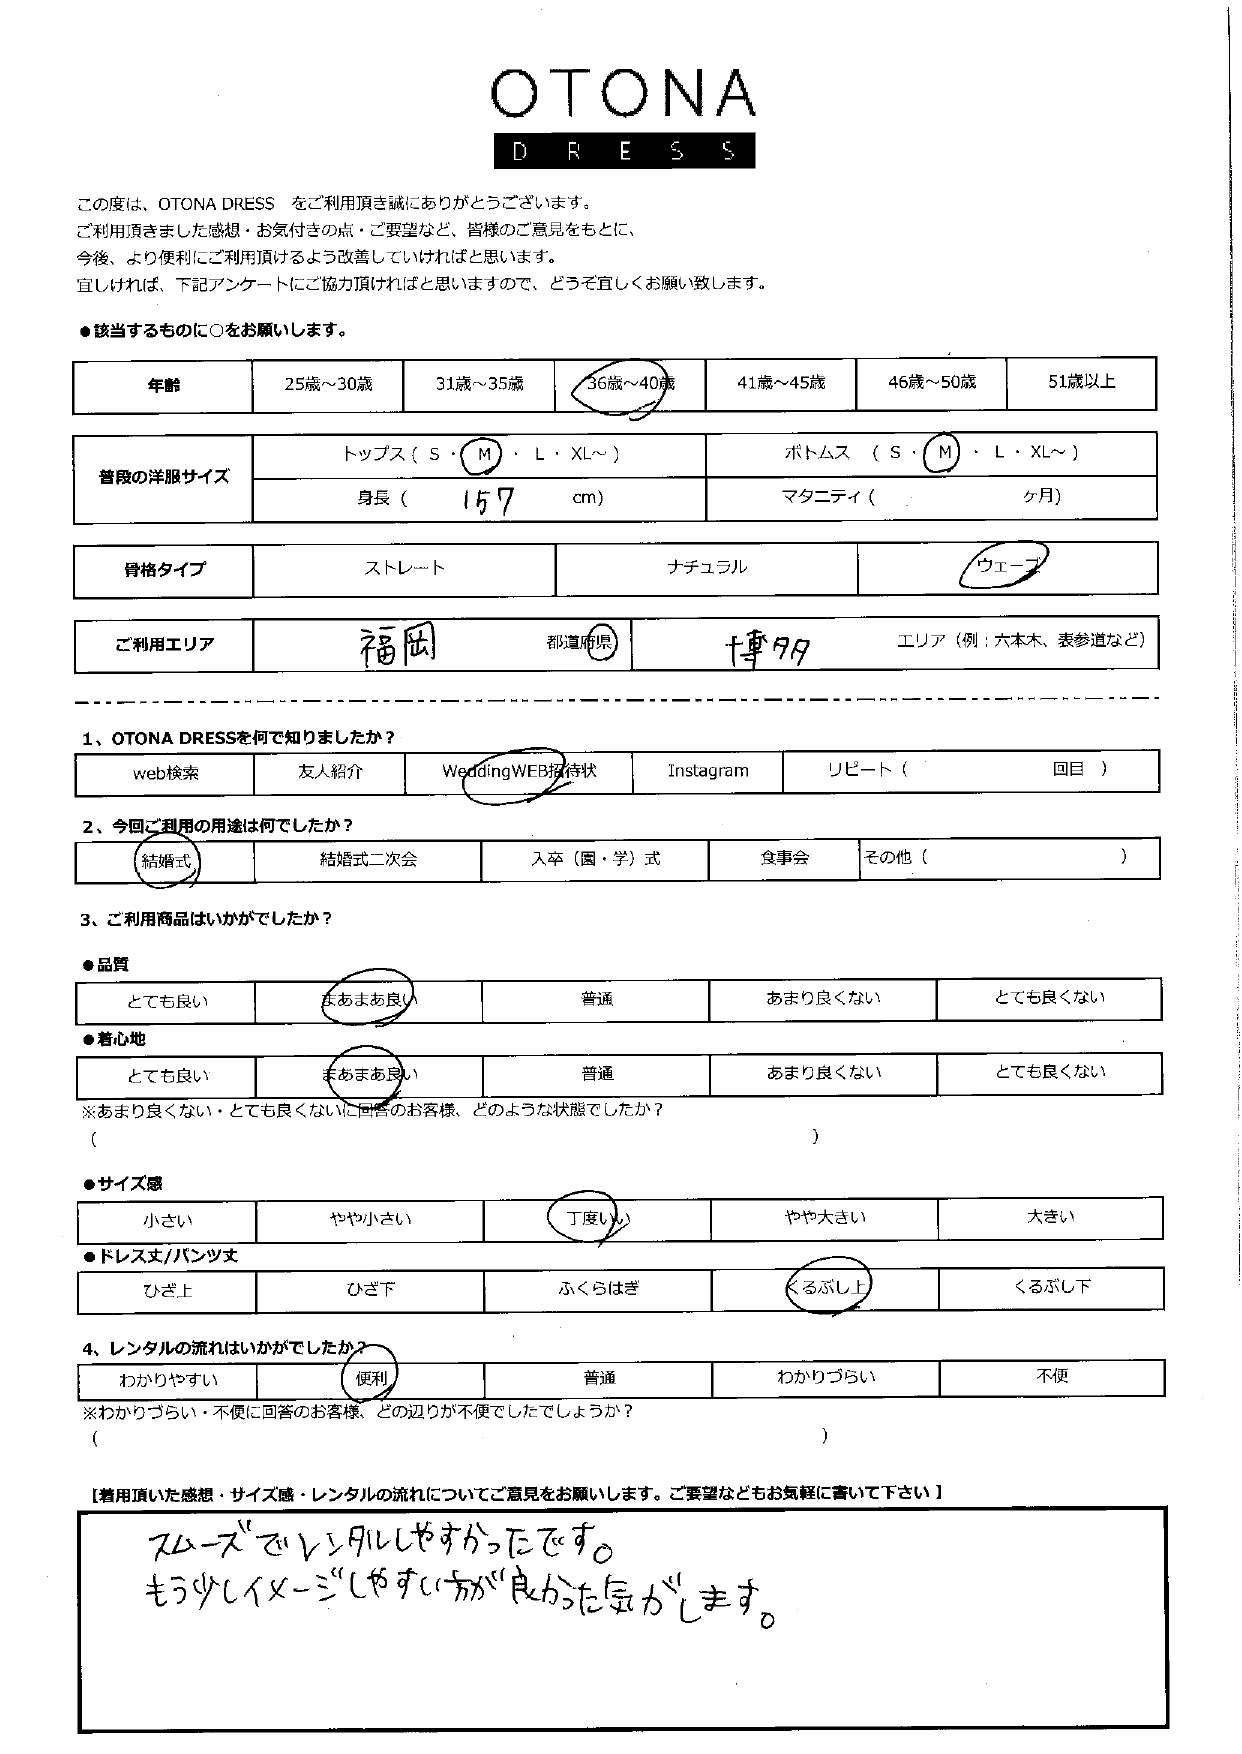 OTONA
DRESS
この度は、OTONA DRESS　をご利用頂き誠にありがとうございます。
ご利用頂きました感想・お気付きの点・ご要望など、皆様のご意見をもとに、
今後、より便利にご利用頂けるよう改善していければと思います。
宜しければ、下記アンケートにご協力頂ければと思いますので、どうぞ宜しくお願い致します。
●該当するものに○をお願いします。
年齢 25歳～30歳 31歳～35歳 36歳～40歳 41歳～45歳 46歳～50歳 51歳以上
普段の洋服サイズ
トップス ( S ・ M ・ L ・ XL～ ) ボトムス ( S ・ M ・ L ・ XL～ )
身長 ( 157 cm) マタニティ ( ヶ月)
骨格タイプ ストレート ナチュラル ウェーブ
ご利用エリア 福岡 都道府県 博多 エリア（例：六本木、表参道など）
1、OTONA DRESSを何で知りましたか？
web検索 友人紹介 WeddingWEB招待状 Instagram リピート（ 回目 ）
2、今回ご利用の用途は何でしたか？
結婚式 結婚式二次会 入卒（園・学）式 食事会 その他（ ）
3、ご利用商品はいかがでしたか？
●品質
とても良い まあまあ良い 普通 あまり良くない とても良くない
●着心地
とても良い まあまあ良い 普通 あまり良くない とても良くない
※あまり良くない・とても良くないに回答のお客様、どのような状態でしたか？
( )
●サイズ感
小さい やや小さい 丁度いい やや大きい 大きい
●ドレス丈/パンツ丈
ひざ上 ひざ下 ふくらはぎ くるぶし上 くるぶし下
4、レンタルの流れはいかがでしたか？
わかりやすい 便利 普通 わかりづらい 不便
※わかりづらい・不便に回答のお客様、どの辺りが不便でしたでしょうか？
( )
【着用頂いた感想・サイズ感・レンタルの流れについてご意見をお願いします。ご要望などもお気軽に書いて下さい 】
スムーズでレンタルしやすかったです。
もう少しイメージしやすい方が良かった気がします。